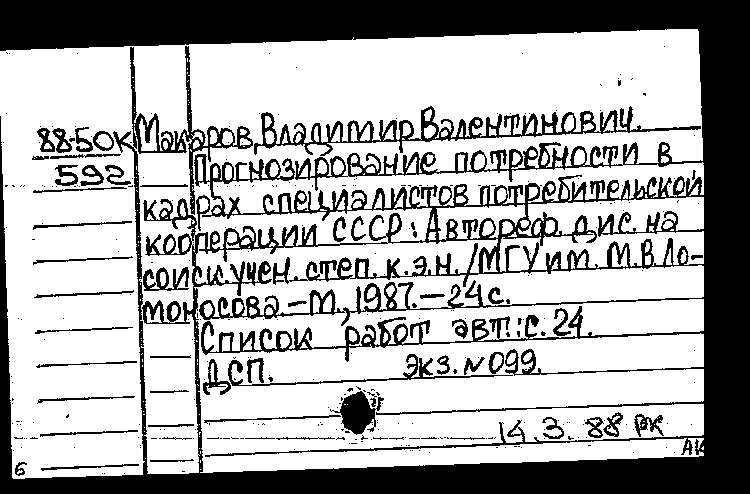 88-50К Макаров, Владимир Валентинович.
592 Прогнозирование потребности в
кадрах специалистов потребительской
кооперации СССР: Автореф. дис. на
соиск. учен. степ. к.э.н./МГУ им. М.В.Ло-
моносова.-М., 1987.-24с.
Список работ авт.: с. 24.
ДСП. экз. N 099.
14.3.88 РК
АК
6